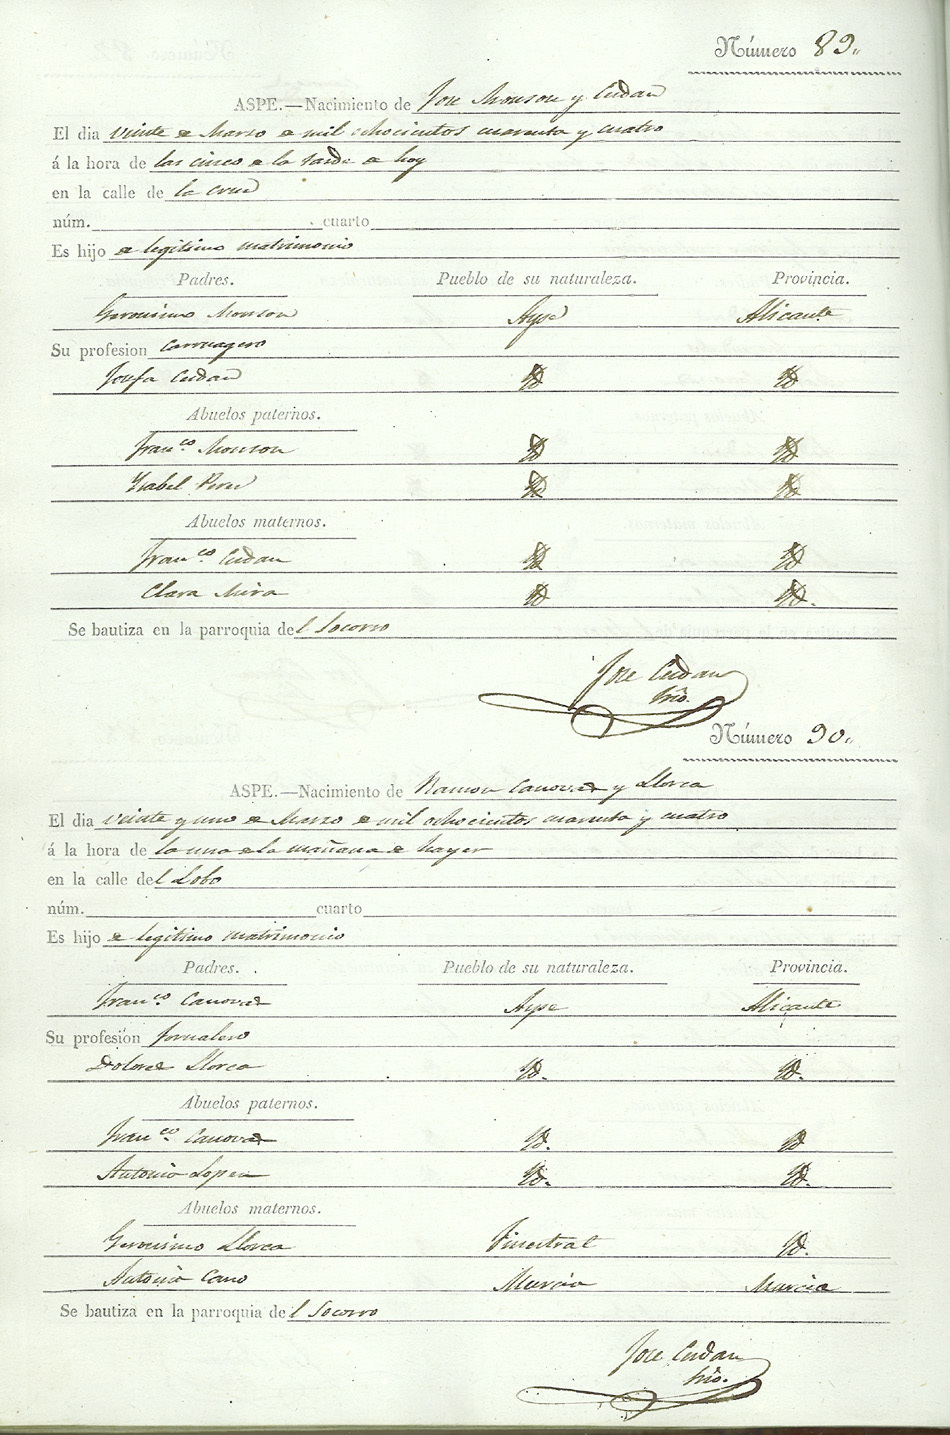 Número 89.
ASPE.—Nacimiento de Jose Monson y Cerdan
El dia veinte de Marzo de mil ochocientos cuarenta y cuatro
á la hora de las cinco de la tarde de hoy
en la calle de la cruz
núm. cuarto
Es hijo de legitimo matrimonio
Padres. Pueblo de su naturaleza. Provincia.
Geronimo Monson Aspe Alicante
Su profesion carruagero
Josefa Cerdan Yd Yd
Abuelos paternos.
Franco. Monson Yd Yd
Ysabel Perez Yd Yd
Abuelos maternos.
Franco. Cerdan Yd Yd
Clara Mira Yd Yd.
Se bautiza en la parroquia del Socorro
Jose Cerdan
Srio.
Número 90.
ASPE.—Nacimiento de Ramon Canovas y Llorca
El dia veinte y uno de Marzo de mil ochocientos cuarenta y cuatro
á la hora de la una de la mañana de hayer
en la calle del Lobo
núm. cuarto
Es hijo de legitimo matrimonio
Padres. Pueblo de su naturaleza. Provincia.
Franco Canovas Aspe Alicante
Su profesion Jornalero
Dolores Llorca Yd. Yd.
Abuelos paternos.
Franco. Canovas Yd. Yd
Antonia Lopez Yd. Yd.
Abuelos maternos.
Geronimo Llorca Finestrat Yd.
Antonia Cano Murcia Murcia
Se bautiza en la parroquia del Socorro
Jose Cerdan
Srio.